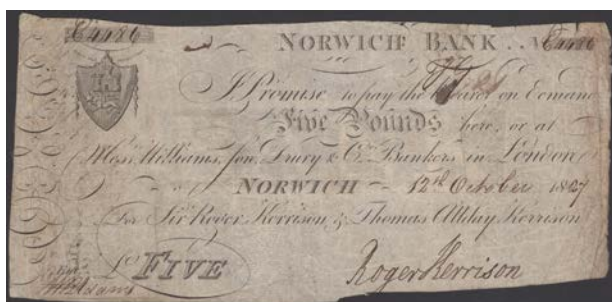 E4486 NORWICH BANK E4486
I Promise to pay the Bearer on Demand
Five Pounds here, or at
Messrs Williams, Son, Drury & Co. Bankers in London
NORWICH 12th October 1807
For Sir Roger Kerrison, & Thomas Allday Kerrison
£ FIVE Roger Kerrison